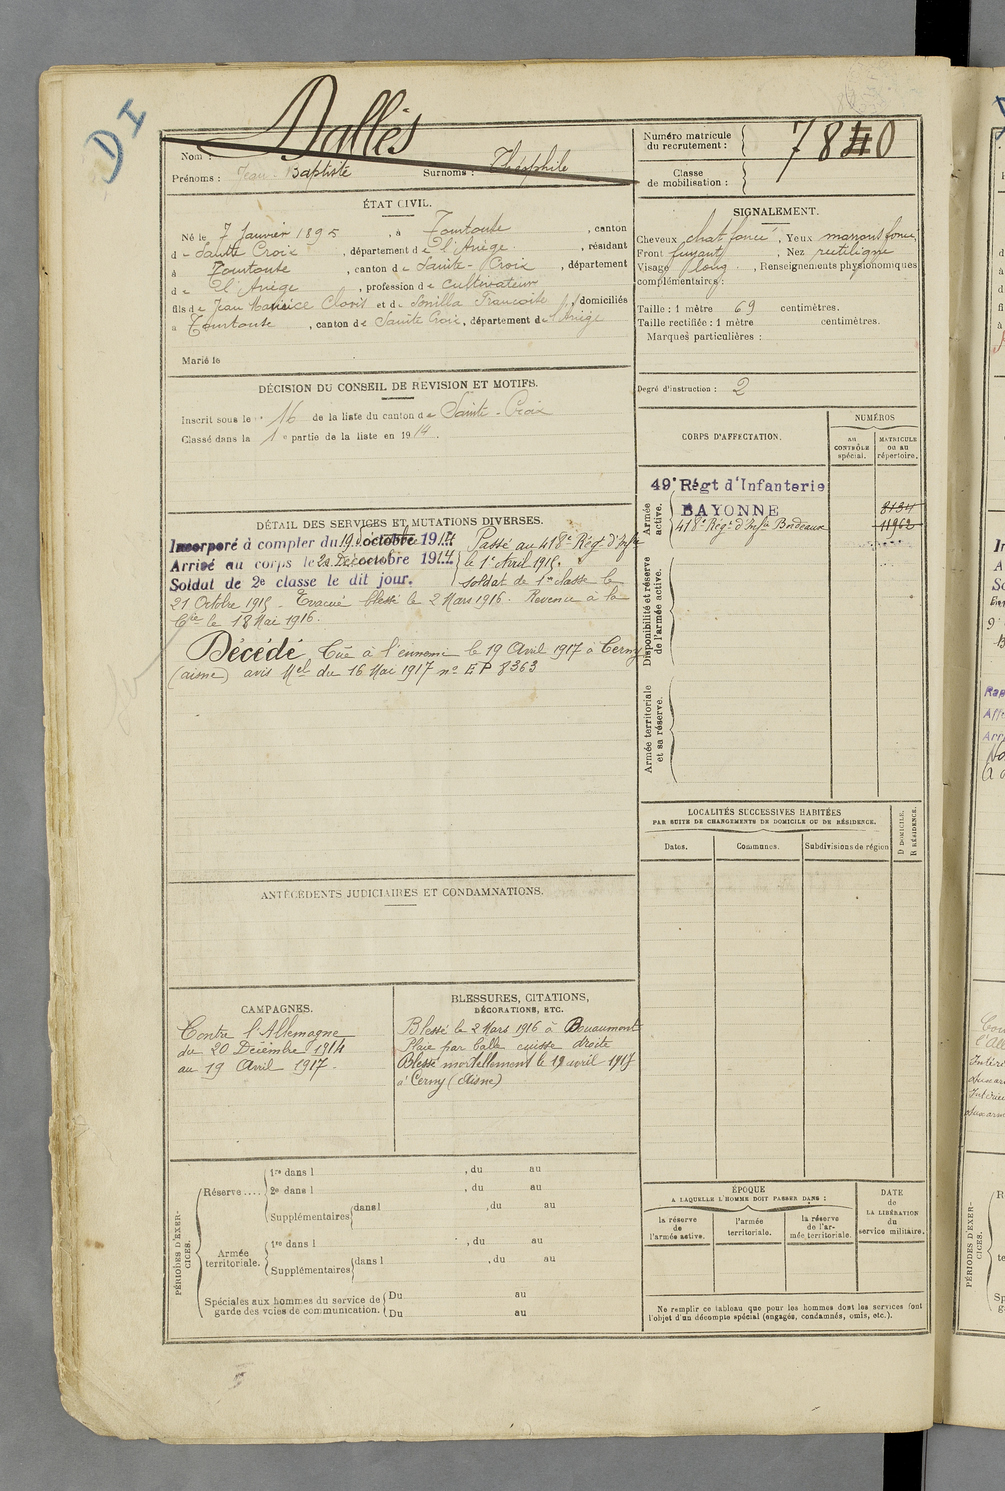 DI
Dallès
Nom :
Prénoms : Jean-Baptiste Surnoms : Théophile
Numéro matricule
du recrutement : 7840
Classe
de mobilisation :
ÉTAT CIVIL.
Né le 7 Janvier 1895, à Tourtouse, canton
d e Sainte Croix, département d e l'Ariège, résidant
à Tourtouse, canton d e Sainte-Croix, département
d e l'Ariège, profession d e cultivateur
fils d e Jean Maurice Cloris et d e Françoise domiciliés
à Tourtouse, canton d e Sainte Croix, département d e l'Ariège
Marié le
SIGNALEMENT.
Cheveux chat. foncé, Yeux marrons foncé,
Front fuyant, Nez rectiligne
Visage long, Renseignements physionomiques
complémentaires :
Taille : 1 mètre 69 centimètres.
Taille rectifiée : 1 mètre centimètres.
Marques particulières :
Degré d'instruction : 2
DÉCISION DU CONSEIL DE REVISION ET MOTIFS.
Inscrit sous le n° 16 de la liste du canton d e Sainte-Croix
Classé dans la 1re partie de la liste en 1914.
CORPS D'AFFECTATION.
NUMÉROS
AU
CONTRÔLE
spécial.
MATRICULE
OU AU
répertoire.
Armée
active.
49e Régt d'Infanterie
BAYONNE
418e Régt d'Infie Bordeaux 11962
Disponibilité et réserve
de l'armée active.
Armée territoriale
et sa réserve.
DÉTAIL DES SERVICES ET MUTATIONS DIVERSES.
Incorporé à compter du 19 octobre 1914
Arrivé au corps le 20 Décembre octobre 1914
Soldat de 2e classe le dit jour.
Passé au 418e Régt d'Infie
le 1er Avril 1915.
soldat de 1re classe le
21 Octobre 1915. Evacué blessé le 2 Mars 1916. Revenu à la
Cie le 18 Mai 1916.
Décédé Tué à l'ennemi le 19 Avril 1917 à Cerny
(aisne) avis Mel du 16 Mai 1917 no EP 8363
LOCALITÉS SUCCESSIVES HABITÉES
PAR SUITE DE CHANGEMENTS DE DOMICILE OU DE RÉSIDENCE.
Dates.
Communes.
Subdivisions de région
D DOMICILE.
R RÉSIDENCE.
ANTÉCÉDENTS JUDICIAIRES ET CONDAMNATIONS.
CAMPAGNES.
Contre l'Allemagne
du 20 Décembre 1914
au 19 Avril 1917.
BLESSURES, CITATIONS,
DÉCORATIONS, ETC.
Blessé le 2 Mars 1916 à Douaumont
Plaie par balle cuisse droite
Blessé mortellement le 19 avril 1917
à Cerny (Aisne)
PÉRIODES D'EXER-
CICES.
Réserve ....
1re dans l , du au
2e dans l , du au
Supplémentaires dans l , du au
Armée
territoriale.
1re dans l , du au
Supplémentaires dans l , du au
Spéciales aux hommes du service de
garde des voies de communication.
Du au
Du au
ÉPOQUE
A LAQUELLE L'HOMME DOIT PASSER DANS :
la réserve
de
l'armée active.
l'armée
territoriale.
la réserve
de l'ar-
mée territoriale.
DATE
de
LA LIBÉRATION
du
service militaire.
Ne remplir ce tableau que pour les hommes dont les services font
l'objet d'un décompte spécial (engagés, condamnés, omis, etc.).